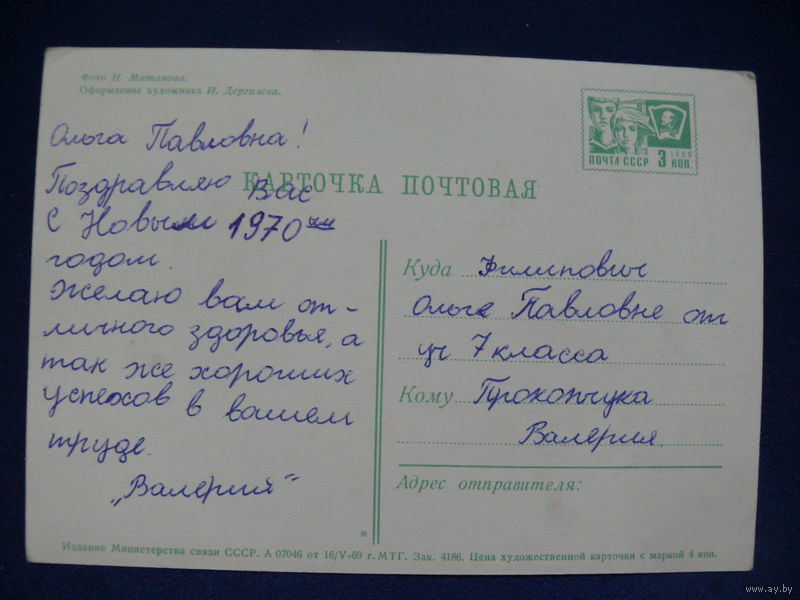 Фото Н. Матанова.
Оформление художника Н. Дергилева.
ПОЧТА СССР 3 1966 КОП.
КАРТОЧКА ПОЧТОВАЯ
Ольга Павловна!
Поздравляю Вас
С Новым 1970ым
годом.
Желаю вам от-
личного здоровья, а
так же хороших
успехов в вашем
труде.
„Валерий"
Куда Филипович
Ольге Павловне от
уч 7 класса
Кому Прокопчука
Валерия.
Адрес отправителя:
*
Издание Министерства связи СССР. А 07046 от 16/V-69 г. МТГ. Зак. 4186. Цена художественной карточки с маркой 4 коп.
www.ay.by